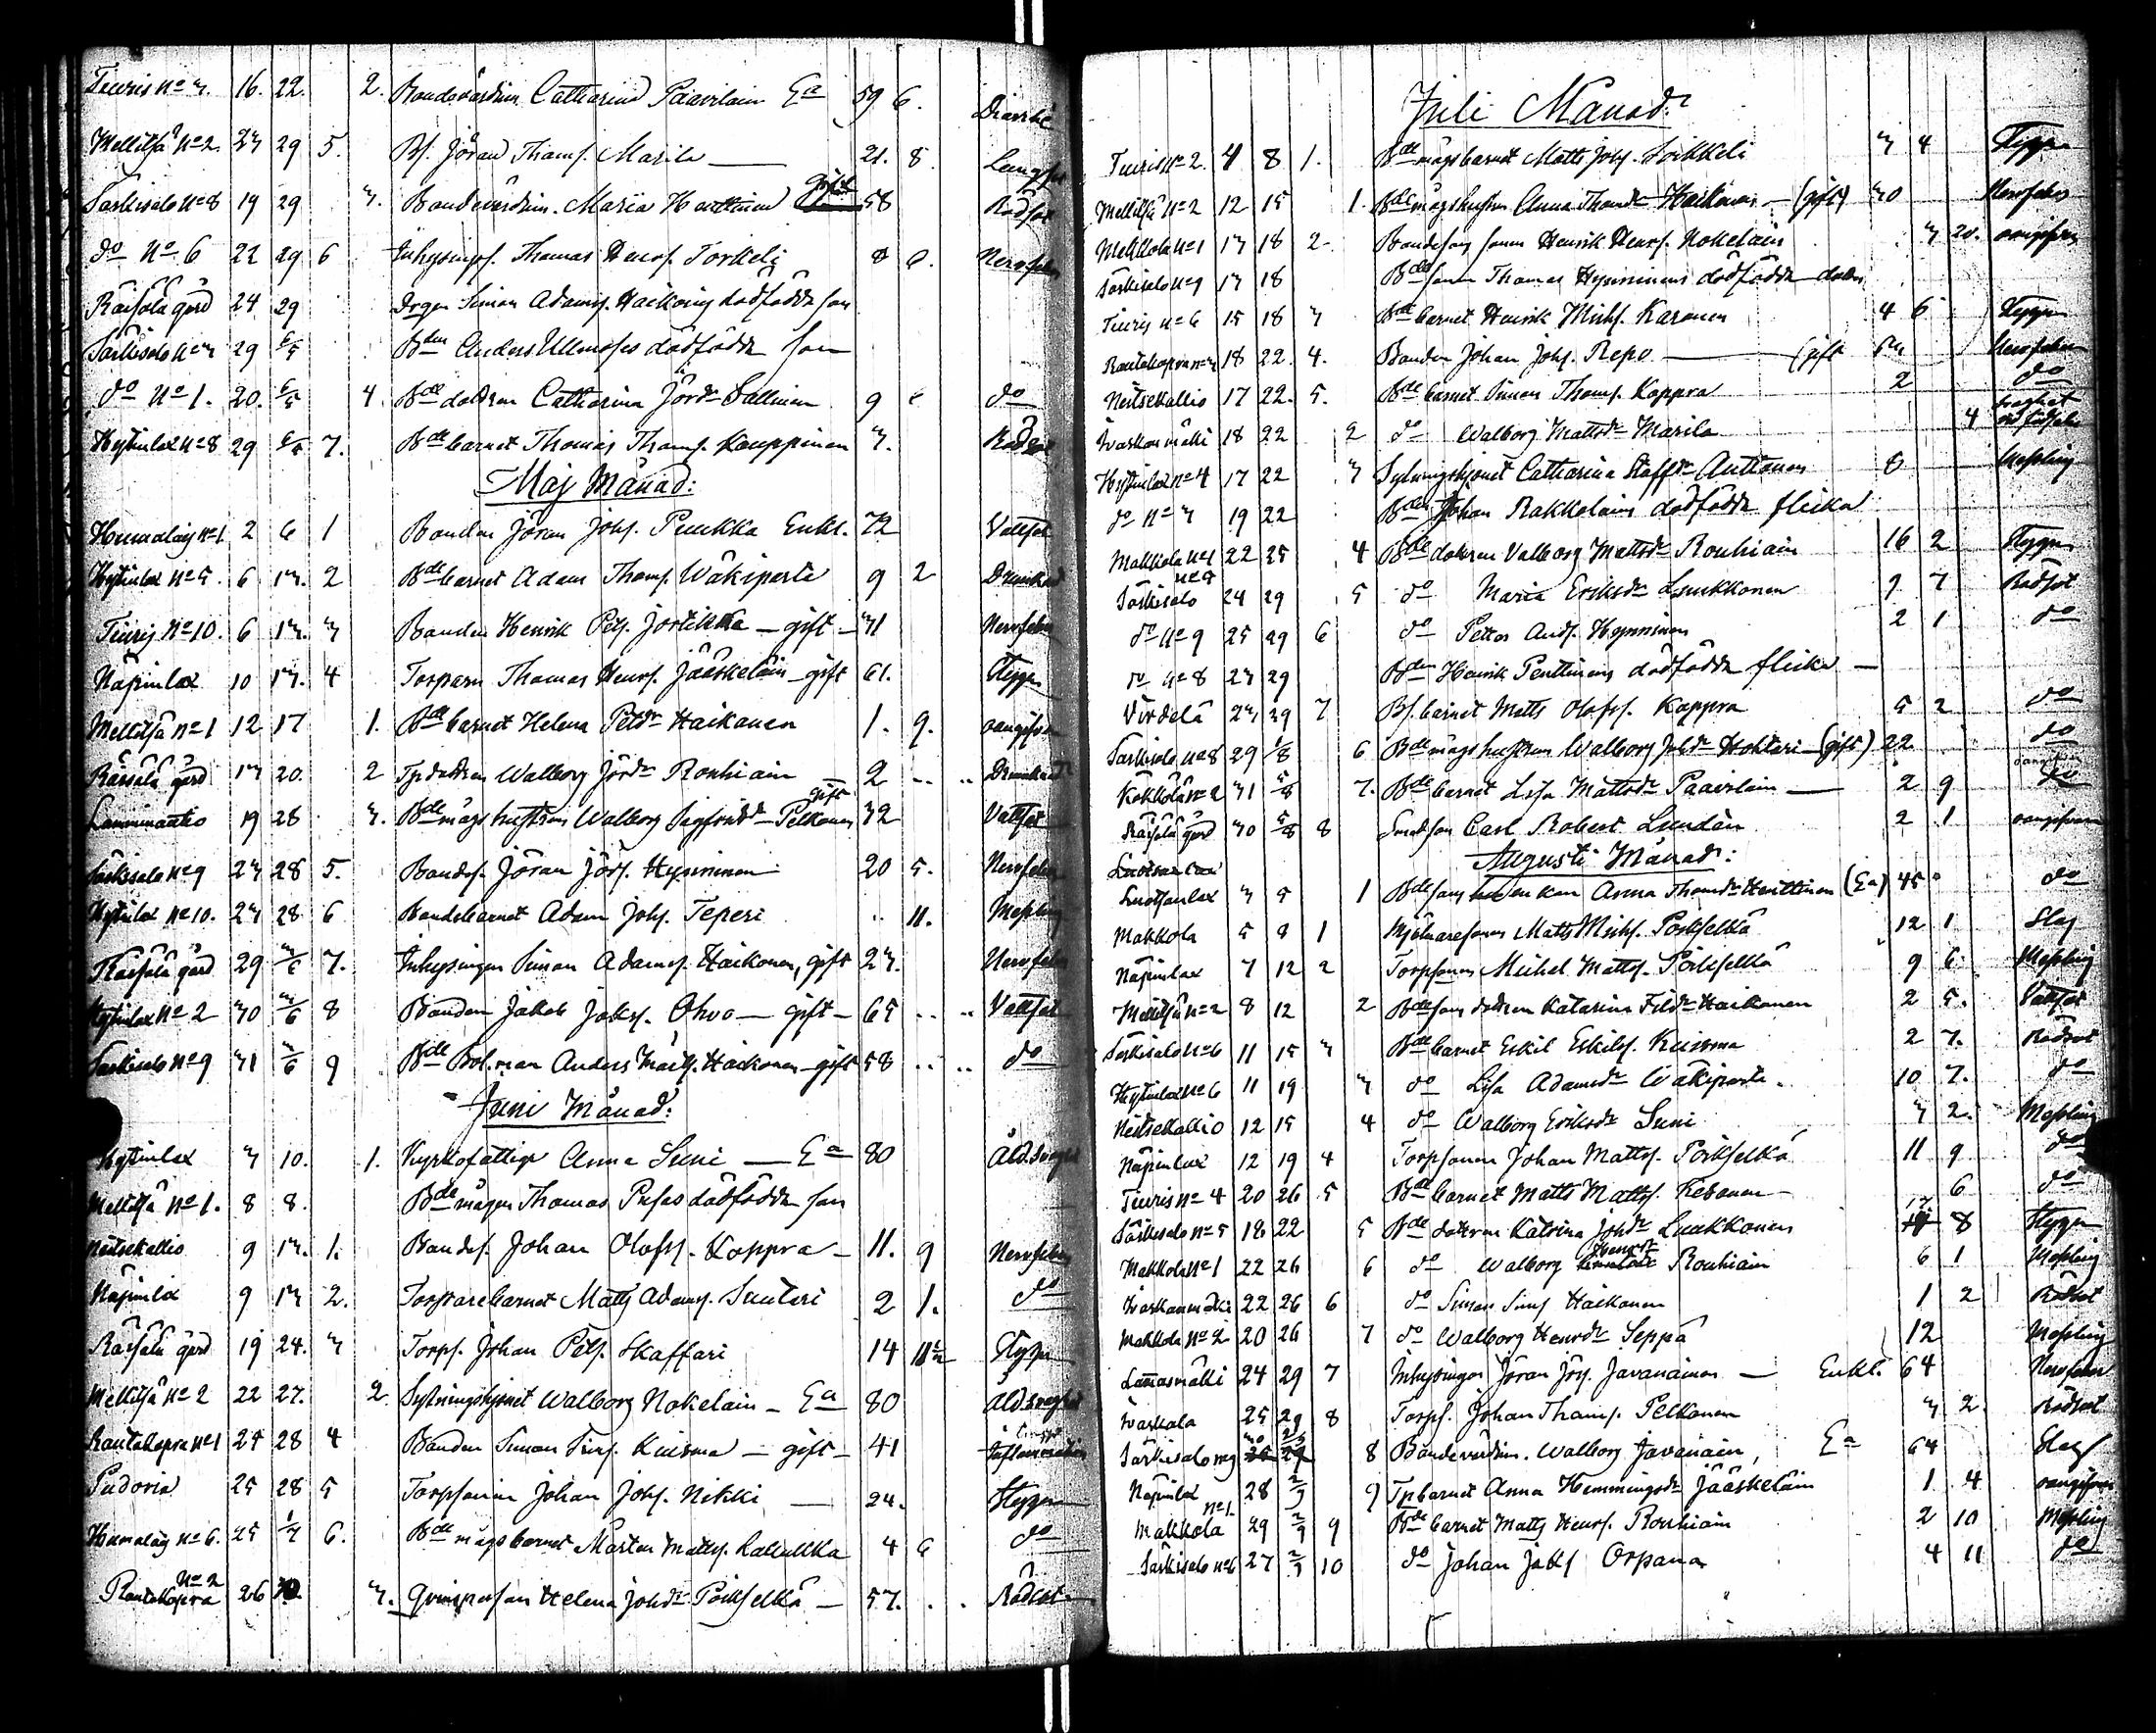 Tiuris No 3. 16. 22. 2. Bondevärdin. Catharina Paavilain Ea 59 6. Diarrhé
Mellilsä No 2. 23 29 5. Bs. Jöran Thoms. Marila — 21. 8. Lungsot
Särkisalo No 8 19 29 3. Bondevärdin. Maria Hanttinen gift 58 Rödsot
do No 6 22 29 6 Inhysingss. Thomas Henrs. Torkeli 8 6. Nervfeber
Räisälä gård 24 29 Drgen Simon Adams. Haikoins dödfödde son
Särkisalo No 3 29 6/5 Bden Anders Ullmoses dödfödde son
do No 1. 20. 6/5 4. Bde dottren Catharina Jörsdr Sallinen 9 do
Hytinlax No 8 29 6/5 7. Bde barnet Thomas Thoms. Kauppinen 3. Rödsot
Maj Månad:
Humalais No 1 2 6 1 Bonden Jöran Johs. Puukka Enkl. 72 Vattsot
Hytinlax No 5. 6 13. 2 Bde barnet Adam Thoms. Wäkiparta 9 2
Tiuris No 10. 6 13. 3 Bonden Henrik Pets. Jortikka — gift — 31 Nervfeber
Näpinlax 10 13. 4 Torparn Thomas Henrs. Jääskeläin — gift 61. Stygn
Mellilsä No 1 12 17 1. Bde barnet Helena Petsdr Haikonen 1. 9. oangifven
Räisälä gård 13 20. 2 Tp dottren Walborg Jörsdr Rouhiain — 2
19 28 3. Bde mågs hustrun Walborg Sigfridsdr Pelkonen gift 32 Vattsot
Särkisalo No 9 23 28 5. Bondes. Jöran Jörs. Hynninen 20 5. Nervfeber
Hytinlax No 10. 23 28 6 Bondebarnet Adam Johs. Teperi 11. Messling
Räisälä gård 29 3/6 7. Inhysingen Simon Adams. Haikonen, gift 23. Nervfeber
Hytinlax No 2 30 3/6 8 Bonden Jakob Jakos. Ohvo — gift — 65 Vattsot
Särkisalo No 9 31 3/6 9 Bde Bol.man Anders Matts. Haikonen — gift 58 do
Juni Månad:
Hytinlax 3 10. 1. Kyrkofattige Anna Suni — Ea 80 Åld.svaghet
Mellilsä No 1. 8 8. Bde mågen Thomas Pusas dödfödde son
Neitsekallio 9 13. 1. Bondes. Johan Olofss. Koppra — 11. 9 Nervfeber
Näpinlax 9 13 2. Torparebarnet Matts Adams. Suuteri 2 1. do
Räisälä gård 19 24. 3 Torps. Johan Pets. Skaffari 14 11½ Stygn
Mellilsä No 2 22 27. 2. Sytningshjonet Walborg Nokelain — Ea 80 Åld.svaghet
Rantakopra No 1 25 28 4 Bonden Simon Sims. Kuisma — gift — 41
Pudoria 25 28 5 Torpsonen Johan Johs. Nikki — 24. Stygn
Humalais No 6. 25 1/7 6. Bde mågs barnet Mårten Matts. 4 6 do
Rantakopra No 2 26 30. 3. Qvinspersonen Helena Johsdr Poikselkä — 57. Rödsot
Juli Månad:
Tiuris No 2. 4 8 1. Bde mågsbarnet Matts Johs. Torkkeli 3 4 Stygn
Mellilsä No 2 12 15 1. Bde mågshustrun Anna Thomsdr Haikonen — (gift) 30 Nervfeber
Makkola No 1 13 18 2. Bondesons sonen Henrik Henrs. Nokelain 3 20. oangifven
Särkisalo No 9 13 18 Bde sonen Thomas Hynninens dödfödde dotter
Tiuris No 6 15 18 3 Bde barnet Henrik Michs. Karonen 4 6 Stygn
Rantakopra No 3 18 22. 4. Bonden Johan Johs. Repo — (gift Nervfeber
Neitsekallio 17 22. 5. Bde barnet Simon Thoms. Koppra 2 do
Ivaskanmäki 18 22 2 do Walborg Mattsdr Marila 4
Hytinlax No 4 17 22 3 Sytningshjonet Catharina Staffsdr Anttonen 8 Messling
do No 3 19 22 Bden Johan Rakkolains dödfödde flicka
Makkola No 1 22 25 4 Bde dottren Valborg Mattsdr Rouhiain 16 2 Stygn
Särkisalo No 9 24 29 5 do Maria Eriksdr Luukkonen 9 7 Rödsot
do No 9 25 29 6 do Petter Ands. Hynninen 2 1 do
do No 8 23 29 Bden Henrik Penttinens dödfödde flicka —
Virdelä 23 29 7 Bs. barnet Matts Olofss. Koppra 5 2 do
Särkisalo No 8 29 1/8 6 Bde mågs hustrun Walborg Johsdr Hohtari — (gift) 22 do
Kökkölä No 2 31 5/8 7. Bde barnet Lisa Mattsdr Paavilain — 2 9 oangifven
Räisälä gård 30 5/8 8 Smedson Carl Robert Lundén 2 1 oangifven
Augusti Månad:
3 5 1 Bdesons enkan Anna Thomsdr Hanttinen (Ea) 45 do
Makkola 5 8 1 Mjölnaresonen Matts Michs. Poikselkä 12 1 Slag
Näpinlax 7 12 2 Torpsonen Michel Matts. Poikselkä 9 6 Messling
Mellilsä No 2 8 12 2 Bde sons dottren Katarina Haikonen 2 5. Vattsot
Särkisalo No 6 11 15 3 Bde barnet Eskil Eskils. Kuisma 2 7. Rödsot
Hytinlax No 6 11 19 3 do Lisa Adamsdr Wäkiparta 10 7. do
Neitsekallio 12 15 4 do Walborg Eriksdr Suni 3 2. Messling
Näpinlax 12 19 4 Torpsonen Johan Matts. Poikselkä 11 9 do
Tiuris No 4 20 26 5 Bde barnet Matts Matts. Kekonen 6 do
Särkisalo No 5 18 22 5 Bde dottren Katrina Johsdr Luukkonen 8 Stygn
Makkola No 1 22 26 6 do Walborg Henrsdr Rouhiain 6 1 Messling
Ivaskanmäki 22 26 6 do Simon Sims Haikonen 1 2 Rödsot
Makkola No 2 20 26 7 do Walborg Henrsdr Seppä 12 Messling
Lamasmäki 24 29 7 Inhysingen Jöran Jörs. Javanainen — Enkl. 64 Nervfeber
Ivaskala 25 29 8 Torps. Johan Thoms. Pelkonen 3 2. Rödsot
Särkisalo No 9 8 Bondevärdin. Walborg Javanain, Ea 64 Slag
Näpinlax 28 2/9 9 Tpbarnet Anna Hemmingsdr Jääskeläin 1. 4 oangifven
Makkola No 1 29 2/9 9 Bde barnet Matts Henrs. Rouhiain 2 10 Messling
Särkisalo No 6 27 2/9 10 do Johan Jaks Orpana 4 11 do